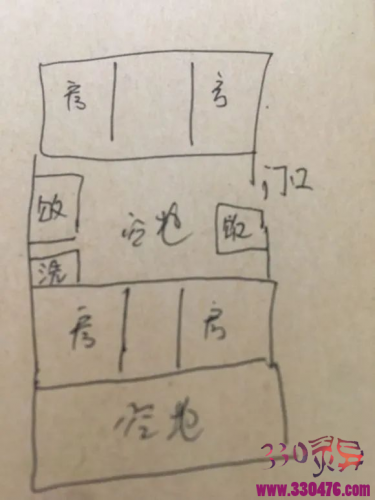 房 房
门口
饭 空地 饭
洗
房 房
空地
330灵异
www.330476.com